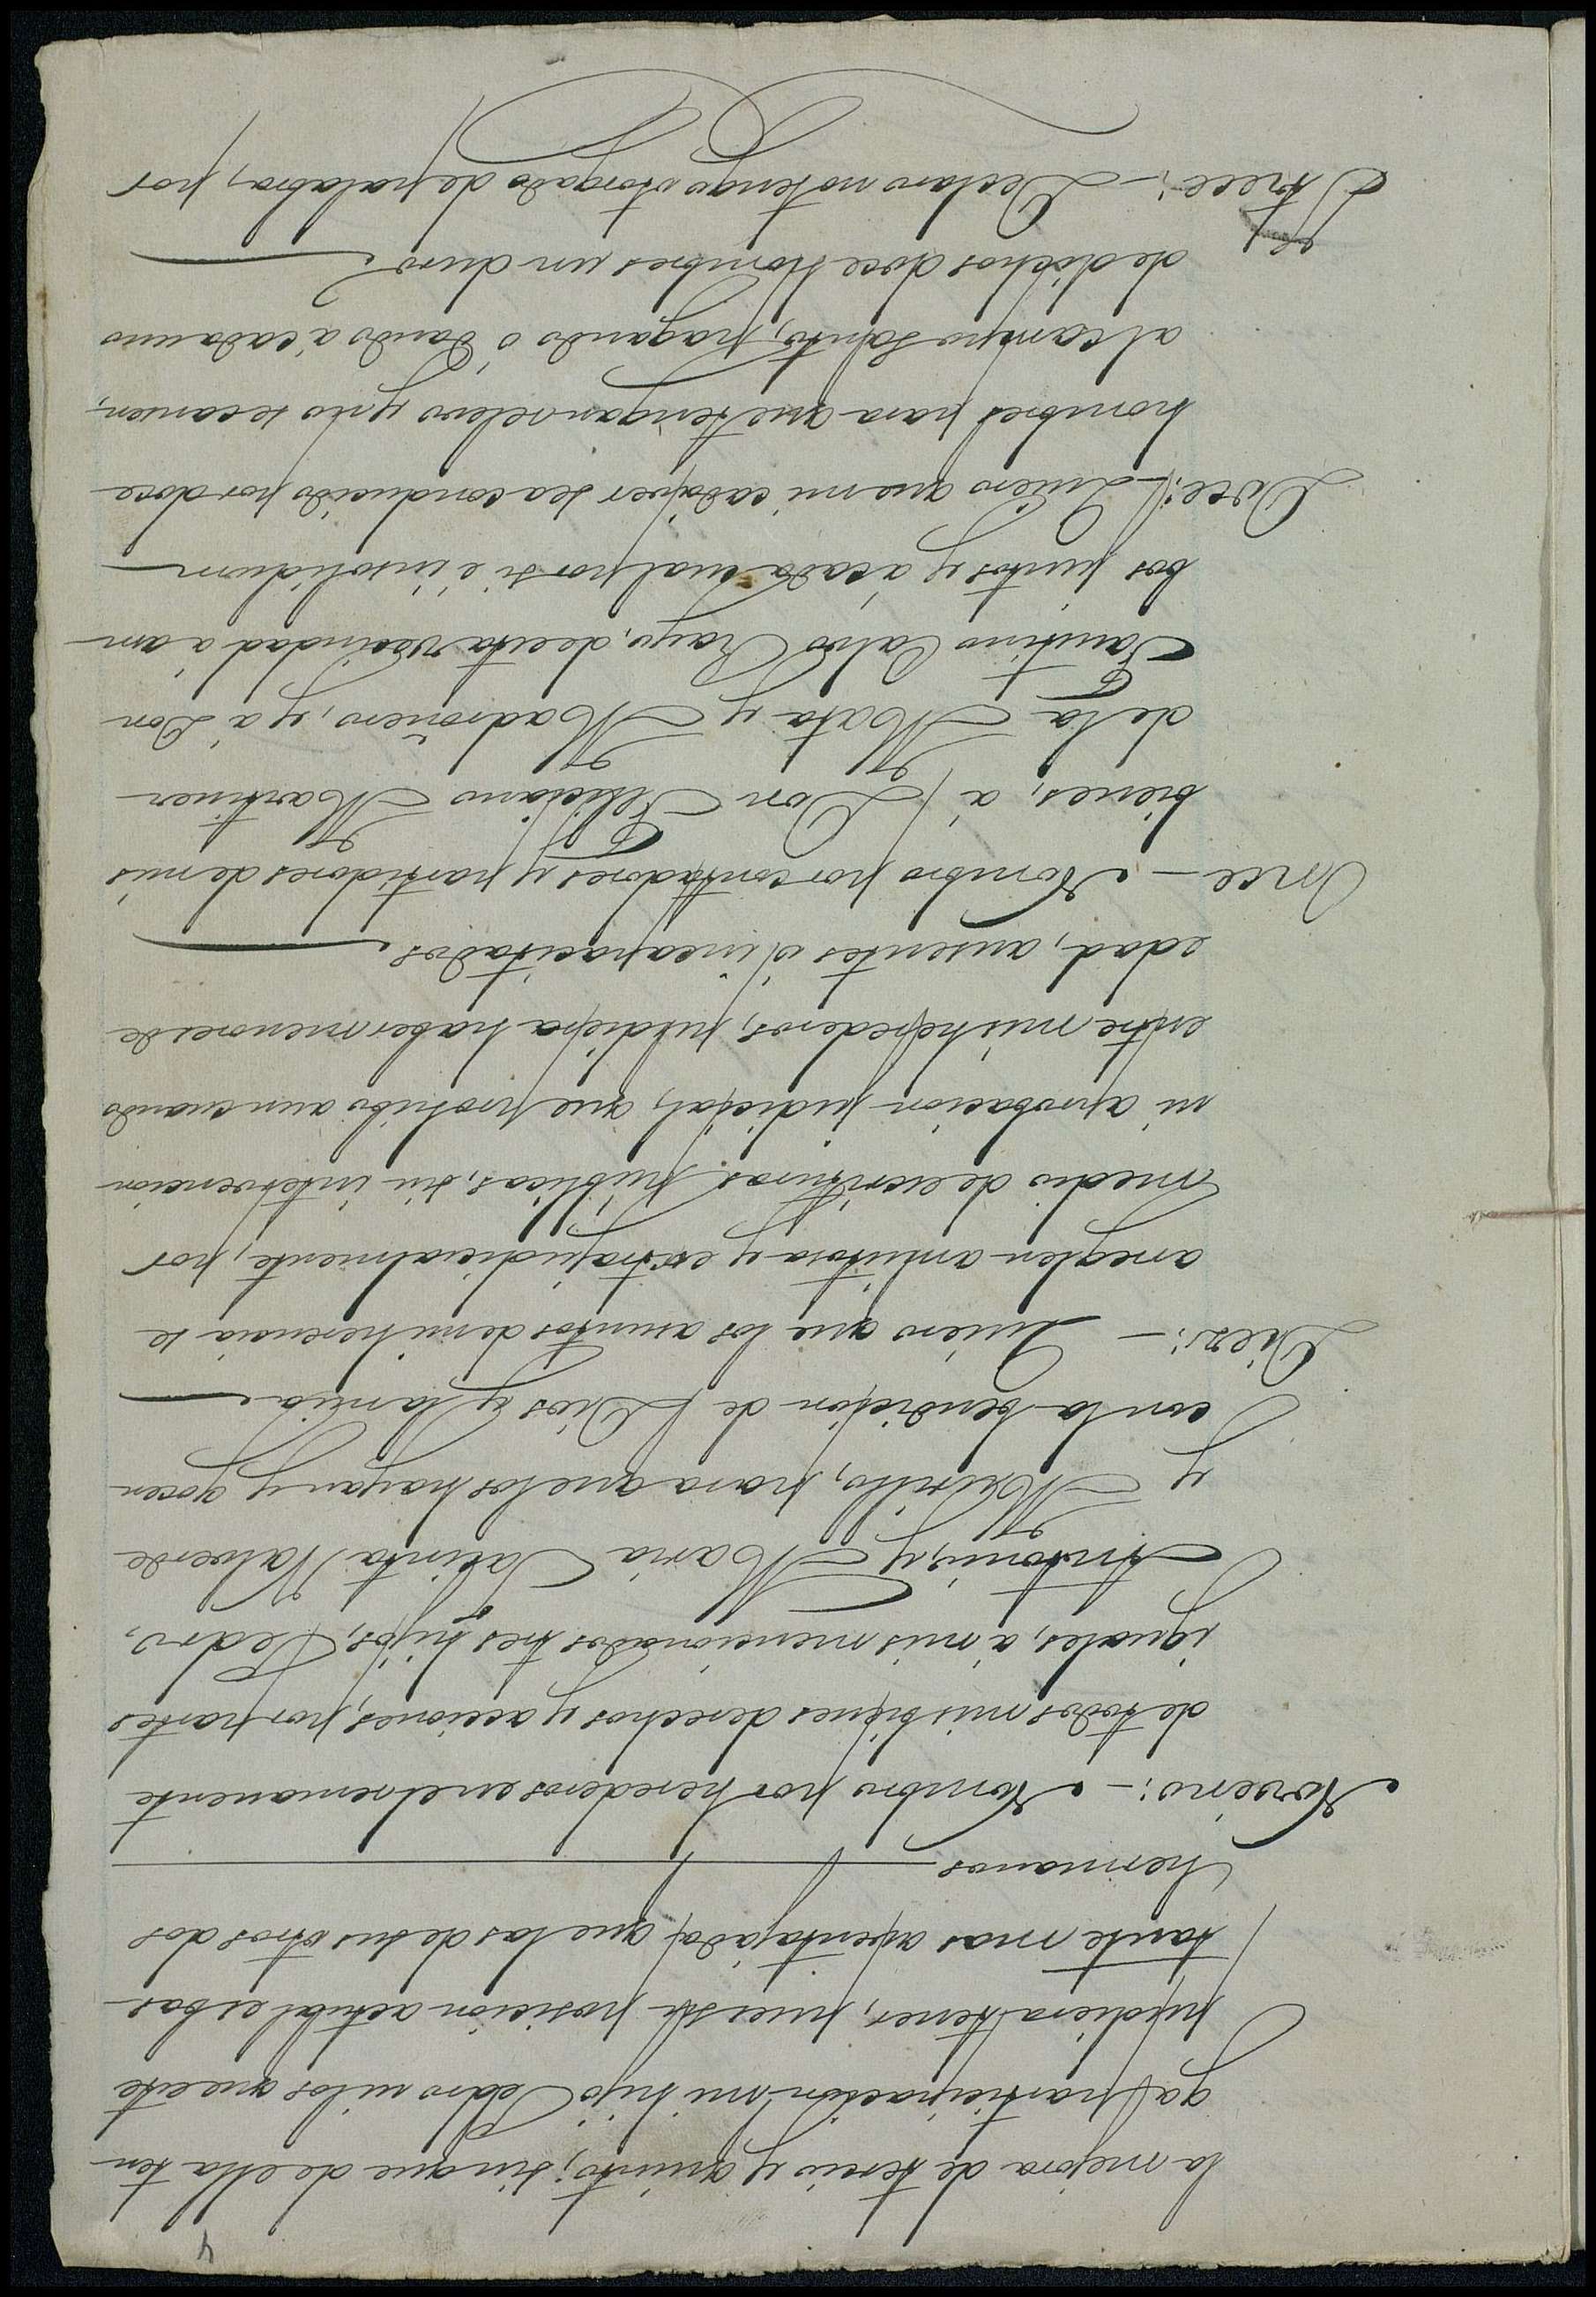 4
la mejora de tercio y quinto; sin que de ella ten-
ga participacion mi hijo Pedro ni los que este
pudiera tener, pues su posicion actual es bas-
tante mas aventajada que las de sus otros dos
hermanos
Noveno:- Nombro por herederos en el remanente
de todos mis bienes derechos y acciones, por partes
iguales, a mis mencionados tres hijos, Pedro,
Antonio, y Maria Jacinta Valverde
y Murillo, para que los hayan y gocen
con la bendicion de Dios y la mia
Diez:- Quiero que los asuntos de mi herencia se
arreglen amistosa y extrajudicialmente, por
medio de escrituras publicas, sin intervencion
ni aprobacion judicial, que prohibo aun cuando
entre mis herederos, pudiera haber menores de
edad, ausentes ó incapacitados
Once - Nombro por contadores y partidores de mis
bienes, á Don Feliciano Martinez
de la Mata y Madroñero, y á Don
Faustino Calvo Rayo, de esta vecindad á am-
bos juntos y á cada cual por si é insolidum
Doce:- Quiero que mi cadaver sea conducido por doce
hombres para que tengan relevo y no se cansen,
al campo Santo, pagando ó dando á cada uno
de dichos doce hombres un duro
Trece:- Declaro no tengo otorgado de palabra, por